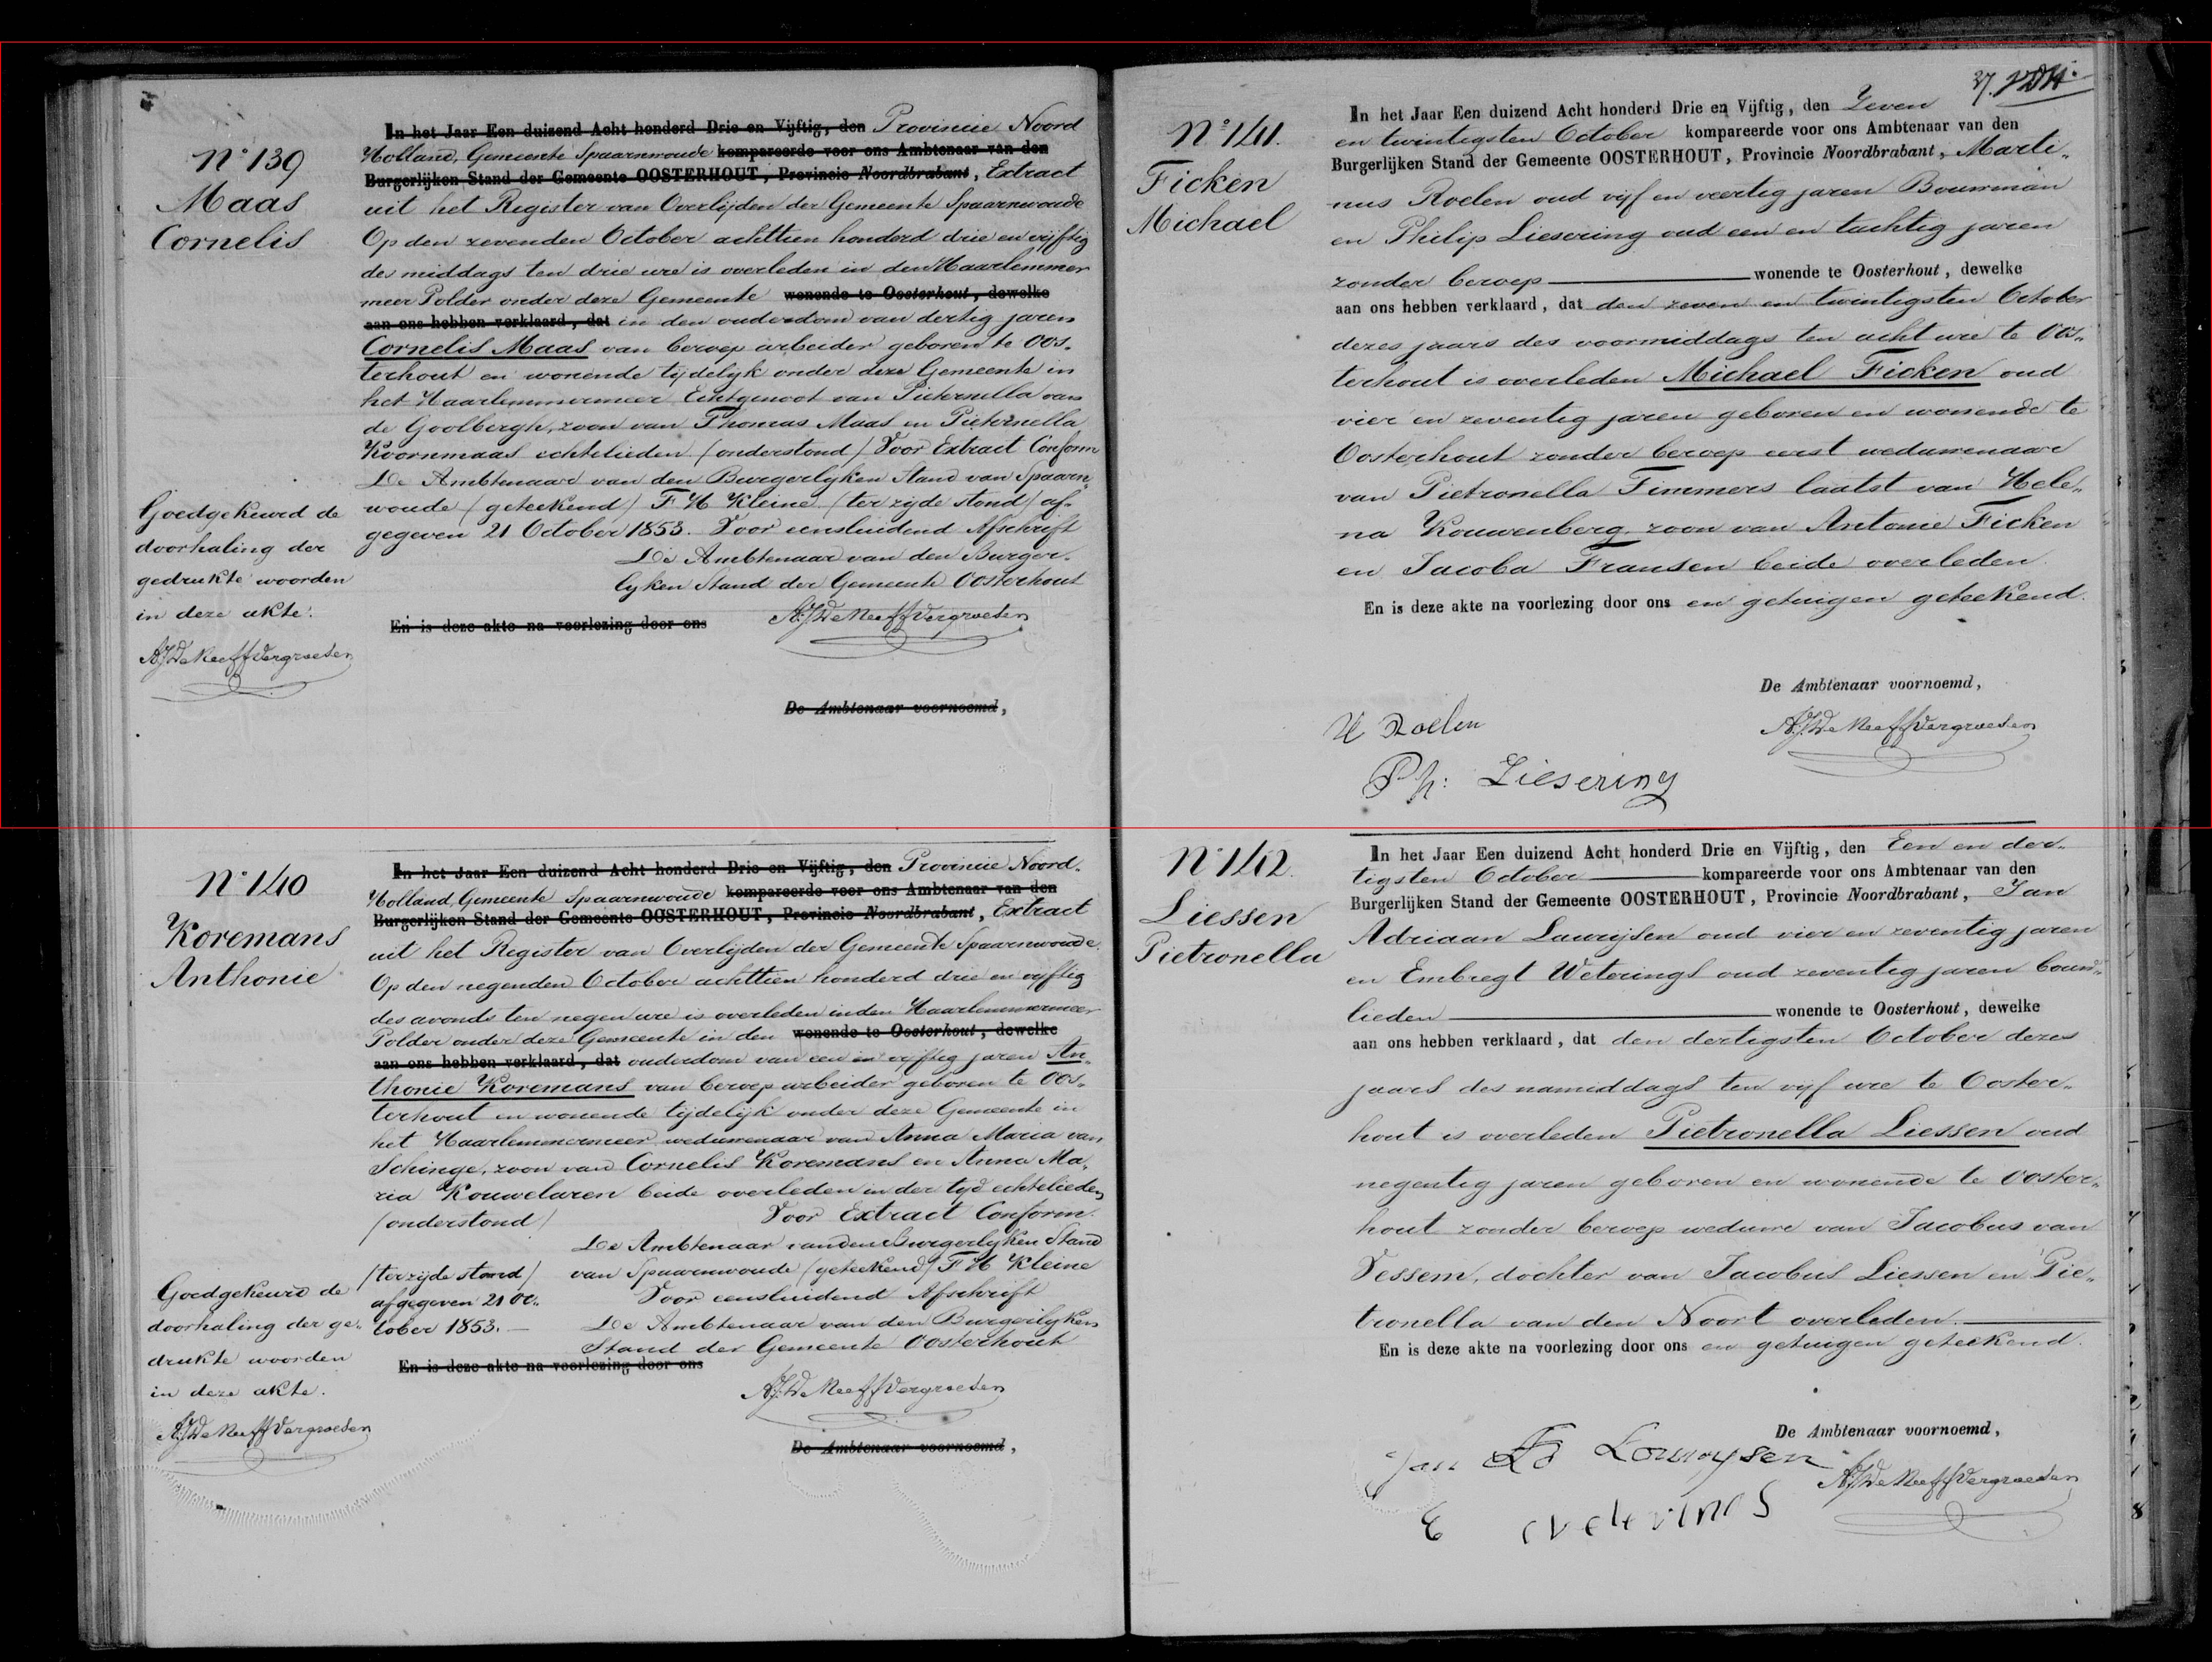 N° 139
Maas
Cornelis
In het Jaar Een duizend Acht honderd Drie en Vijftig, den Provincie Noord
Holland, Gemeente Spaarnwoude kompareerde voor ons Ambtenaar van den
Burgerlijken Stand der Gemeente OOSTERHOUT, Provincie Noordbrabant, Extract
uit het Register van Overlijden der Gemeente Spaarnwoude
Op den zevenden October achttien honderd drie en vijftig
des middags ten drie ure is overleden in den Haarlemmer
meer Polder onder deze Gemeente wonende te Oosterhout, dewelke
aan ons hebben verklaard, dat in den ouderdom van dertig jaren
Cornelis Maas van beroep arbeider geboren te Oos„
terhout en wonende tijdelijk onder deze Gemeente in
het Haarlemmermeer Echtgenoot van Pieternella van
de Goolbergh, zoon van Thomas Maas en Pieternella
Koornmaas echtelieden /onderstond/ Voor Extract Conform
De Ambtenaar van den Burgerlyken Stand van Spaarn„
woude /geteekend/ F H Kleine /ter zyde stond/ af„
gegeven 21 October 1853. Voor eensluidend Afschrift
De Ambtenaar van den Burger„
lyken Stand der Gemeente Oosterhout
En is deze akte na voorlezing door ons
AJ De Neeff Vergroesen
De Ambtenaar voornoemd,
Goedgekeurd de
doorhaling der
gedrukte woorden
in deze akte.
AJ De Neeff Vergroesen
N° 140
Koremans
Anthonie
In het Jaar Een duizend Acht honderd Drie en Vijftig, den Provincie Noord„
Holland, Gemeente Spaarnwoude kompareerde voor ons Ambtenaar van den
Burgerlijken Stand der Gemeente OOSTERHOUT, Provincie Noordbrabant, Extract
uit het Register van Overlijden der Gemeente Spaarnwoude.
Op den negenden October achttien honderd drie en vyftig
des avonds ten negen ure is overleden in den Haarlemmermeer
Polder onder deze Gemeente in den wonende te Oosterhout, dewelke
aan ons hebben verklaard, dat ouderdom van een en vyftig jaren An„
thonie Koremans van beroep arbeider geboren te Oos„
terhout en wonende tijdelijk onder deze Gemeente in
het Haarlemmermeer weduwenaar van Anna Maria van
Schinge, zoon van Cornelis Koremans en Anna Ma„
ria Kouwelaren beide overleden in der tyd echtelieden
/onderstond/ Voor Extract Conform.
De Ambtenaar van den Burgerlyken Stand
/ter zijde stond/ van Spaarnwoude /geteekend/ F H Kleine
afgegeven 21 Oc„ Voor eensluidend Afschrift
tober 1853.— De Ambtenaar van den Burgerlyken
Stand der Gemeente Oosterhout
En is deze akte na voorlezing door ons
AJ De Neeff Vergroesen
De Ambtenaar voornoemd,
Goedgekeurd de
doorhaling der ge„
drukte woorden
in deze akte.
AJ De Neeff Vergroesen
37.
N° 141.
Ficken
Michael
In het Jaar Een duizend Acht honderd Drie en Vijftig, den Zeven
en twintigsten October kompareerde voor ons Ambtenaar van den
Burgerlijken Stand der Gemeente OOSTERHOUT, Provincie Noordbrabant, Marti„
nus Roelen oud vijf en veertig jaren Bouwman
en Philip Liesering oud een en tachtig jaren
zonder beroep wonende te Oosterhout, dewelke
aan ons hebben verklaard, dat den zeven en twintigsten October
dezes jaars des voormiddags ten acht ure te Oos„
terhout is overleden Michael Ficken oud
vier en zeventig jaren geboren en wonende te
Oosterhout zonder beroep eerst weduwenaar
van Pietronella Timmers laatst van Hele„
na Kouwenberg zoon van Antonie Ficken
en Jacoba Fransen beide overleden.
En is deze akte na voorlezing door ons en getuigen geteekend.
De Ambtenaar voornoemd,
M Roelen
AJ De Neeff Vergroesen
Ph: Liesering
N° 142.
Liessen
Pietronella
In het Jaar Een duizend Acht honderd Drie en Vijftig, den Een en der„
tigsten October kompareerde voor ons Ambtenaar van den
Burgerlijken Stand der Gemeente OOSTERHOUT, Provincie Noordbrabant, Jan
Adriaan Laurijsen oud vier en zeventig jaren
en Embregt Weterings oud zeventig jaren bouw„
lieden wonende te Oosterhout, dewelke
aan ons hebben verklaard, dat den dertigsten October dezes
jaars des namiddags ten vijf ure te Ooster„
hout is overleden Pietronella Liessen oud
negentig jaren geboren en wonende te Ooster„
hout zonder beroep weduwe van Jacobus van
Vessem, dochter van Jacobus Liessen en Pie„
tronella van den Noort overleden.
En is deze akte na voorlezing door ons en getuigen geteekend.
De Ambtenaar voornoemd,
Jan Louwysen
AJ De Neeff Vergroesen
E